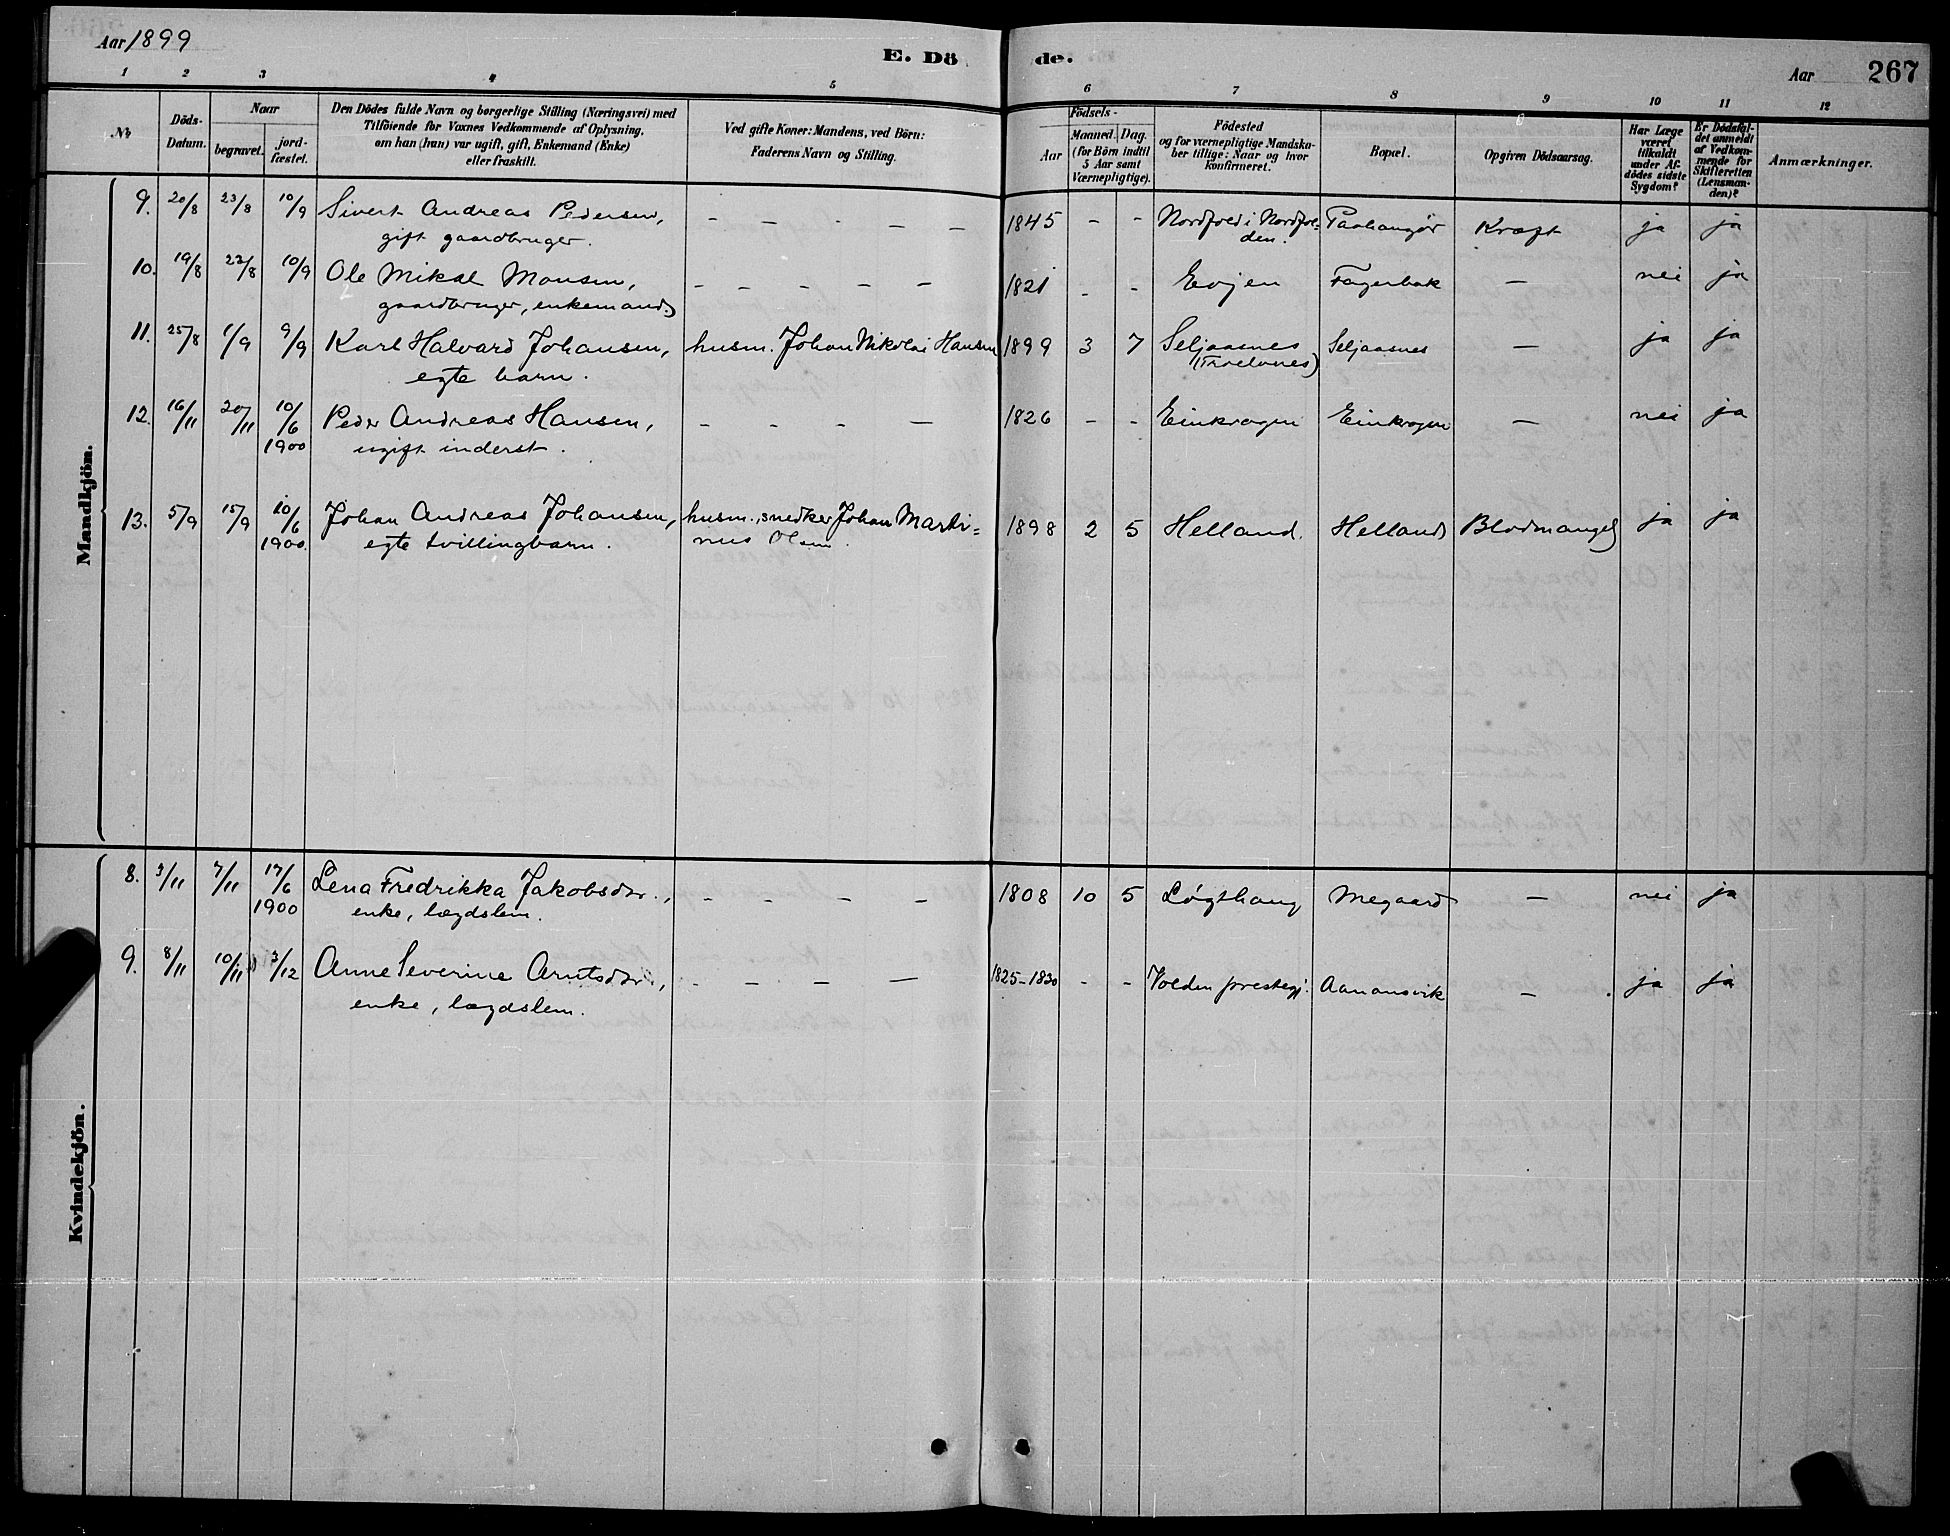 Aar 1899
E. Dö de.
Aar 267
1 2 3 4 5 6 7 8 9 10 11 12
No
Döds-Datum.
Naar
begravet.
jord-fæstet.
Den Dödes fulde Navn og borgerlige Stilling (Næringsvei) med
Tilföiende for Voxnes Vedkommende af Oplysning,
om han (hun) var ugift, gift, Enkemand (Enke)
eller fraskilt.
Ved gifte Koner: Mandens, ved Börn:
Faderens Navn og Stilling.
Födsels-
Aar
Maaned. Dag.
(for Börn indtil
5 Aar samt
Værnepligtige).
Födested
og for værnepligtige Mandska-
ber tillige: Naar og hvor
konfirmeret.
Bopæl.
Opgiven Dödsaarsag.
Har Læge
været
tilkaldt
under Af-
dödes sidste
Sygdom?
Er Dödsfal-
det anmeldt
af Vedkom-
mende for
Skifteretten
(Lensman-
den)?
Anmærkninger.
Mandkjön.
9. 20/8 23/8 10/9 Sivert Andreas Pedersen, - - - - - 1845 - - Nordfold i Nordfol- Kræft ja ja
gift gaardbruger. den.
10. 19/8 22/8 10/9 Ole Mikal Monsen, - - - - - 1821 - - Evjen Fagerbak - nei ja
gaardbruger, enkemand
11. 25/8 1/9 9/9 Karl Halvard Johansen, husm. Johan Nikolai Hansen 1899 3 7 Seljaasnes Seljaasnes - ja ja
egte barn.
12. 16/11 20/11 10/6 Peder Andreas Hansen, - - - - 1826 - - Einkrogen Einkrogen - nei ja
1900 ugift inderst.
13. 5/9 15/9 10/6 Johan Andreas Johansen, husm., snedker Johan Marti= 1898 2 5 Helland. Helland Blodmangel ja ja
1900. egte tvillingbarn. nus Olsen.
Kvindekjön.
8. 3/11 7/11 17/6 Lena Fredrikka Jakobsdr., - - - - 1808 10 5 Løgthaug Megaard - nei ja
1900 enke, lægdslem.
9. 8/11 10/11 3/12 Anne Severine Arntsdr., - - - - 1825-1830 - - Volden prestegj. Aanonsvik - ja ja
enke, lægdslem.